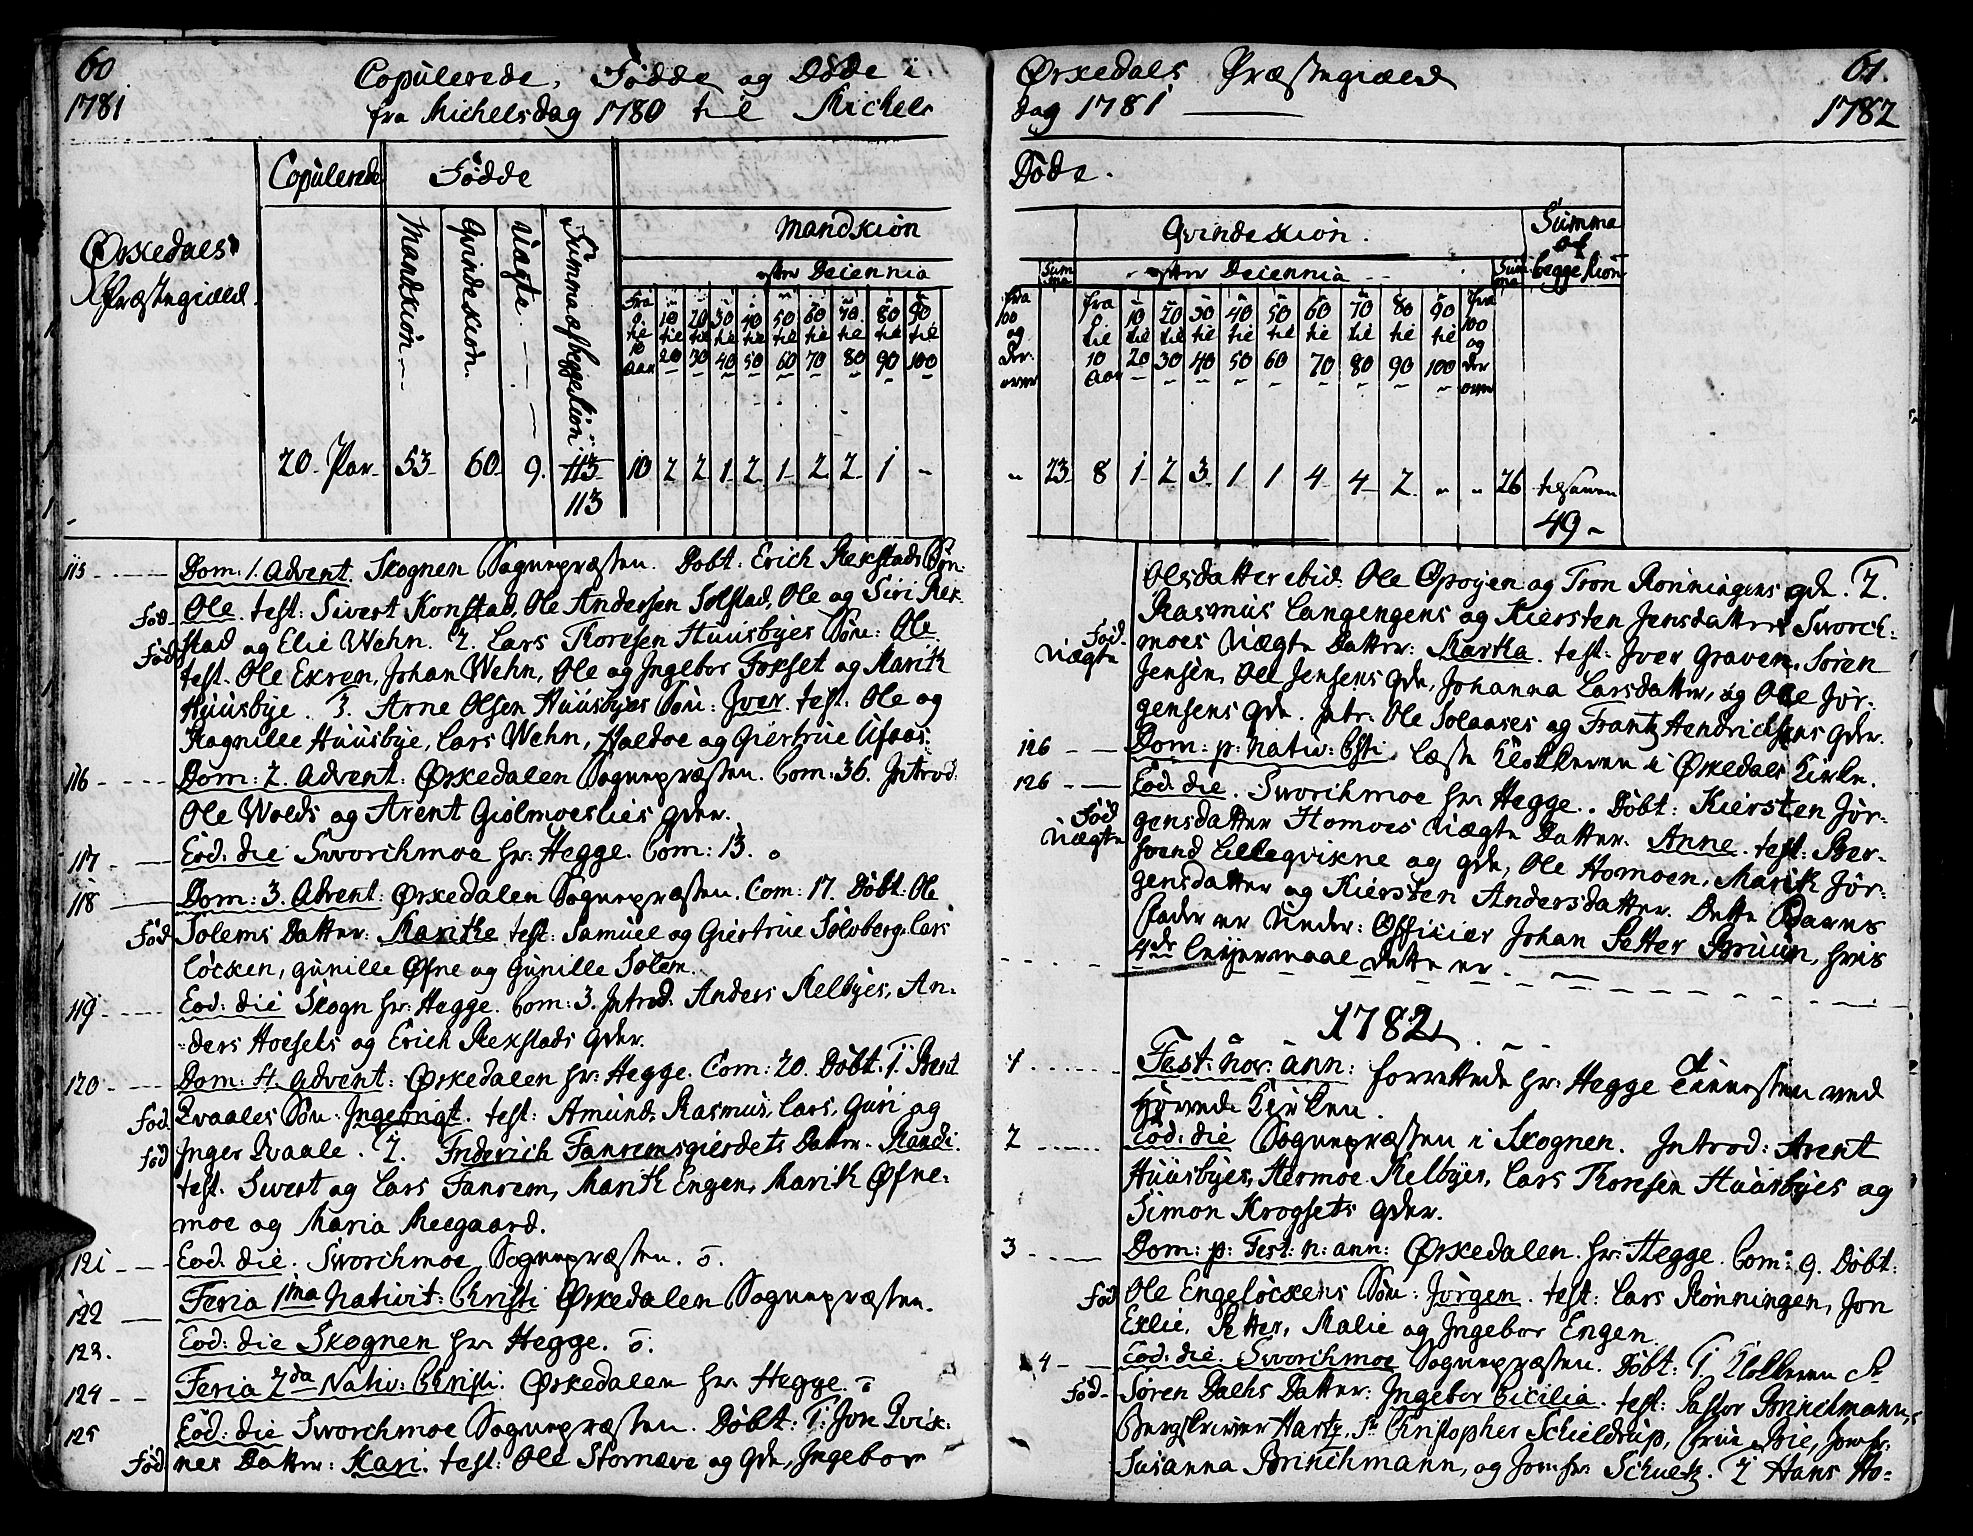 60
1781
Copulerede, Födde og Döde i
fra Michelsdag 1780 til Michels
Ørkedals Præstegiæld
dag 1781
61.
1782
Ørkedals
Præstegiæld.
Copulerede
Födde
Mandkiön
Qvindekiön.
Uægte.
Summa af begge kiön
Mandkiön
efter Deiennia
Fra 0. til 10 Aar
10 til 20
20 til 30
30 til 40
40 til 50
50 til 60
60 til 70
70 til 80
80 til 90
90 til 100
20. Par. 53 60 9. 113 10 2 2 1 2 1 2 2 1 -
113
Döde.
Qvindekiön.
Summa af begge kiön
efter Deiennia
fra 100 og der over
Summa
fra 0 til 10 Aar
10 til 20
20 til 30
30 til 40
40 til 50
50 til 60
60 til 70
70 til 80
80 til 90
90 til 100
fra 100 og der over
Summa
" 23 8 1 2 3 1 1 4 4 2 " " 26 tilsamen
49
115 Dom: 1. Advent. Skognen Sognepræsten. Döbt. Erich Rekstads Sön
Föd Ole. test: Sivert Konstad, Ole Andersen Solstad, Ole og Siri Rek-
Föd stad og Elie Wehn. 2. Lars Thoresen Huusbyes Sön: Ole.
test. Ole Exren, Johan Wehn, Ole og Ingebor Forset og Marith
Huusbye. 3. Arne Olsen Huusbyes Sön: Iver. test: Ole og
Ragnille Huusbye, Lars Wehn, Haldoe og Giertrue Ufsas.
116 Dom: 2. Advent: Ørkedalen Sognepræsten. Com: 36. Introd.
Ole Wolds og Arent Giölmoeslies qder.
117 Eod: die Svorchmoe hr: Hegge. Com: 13. o
118 Dom: 3. Advent: Ørkedalen Sognepræsten. Com: 17. Döbt: Ole
Föd Solems Datter: Marithe test: Samuel og Giertrue Sölvberg, Lars
Löcken, Gunille Øfne og Gunille Solem.
119 Eod: die Skogn hr: Hegge. Com: 3. Introd. Anders Kelbyes, An-
ders Hoesets og Erich Rekstads qder.
120 Dom: 4. Advent: Ørkedalen hr: Hegge. Com: 20. Döbt: 1. Bent
Föd Qvaales Sön: Ingebrigt. test: Amund, Rasmus, Lars, Guri og
Föd Inger Qvaale. 2. Friderich Fanremsgierdets Datter. Randi.
test. Sivert og Lars Fanrem, Marith Engen, Marith Øfne-
moe og Maria Meegaard.
121 Eod. die. Svorchmoe Sognepræsten. o.
122 Feria 1ma Nativit: Christi Ørkedalen Sognepræsten.
123. Eod: die Skognen hr: Hegge. o.
124 Feria 2da Nativ: Christi. Ørkedalen hr. Hegge. o
125 Eod: die Svorchmoe Sognepræsten. Döbt: 1: Jon Qvik-
Föd nes Datter: Kari. test: Ole Stornæve og Qde, Ingebor
Olsdatter ibid. Ole Øroyen og Tron Rönningens qde. 2.
Rasmus Langengens og Kiersten Jensdatters Svorch-
Föd Uægte moes Uægte Datter: Martha. test: Iver Graven, Sören
Jensen, Ole Jensens qde, Johanna Larsdatter, og Ole Jör-
gensens qde. Intr: Ole Solaases og Frantz Hendrichsens qder.
126 Dom: p: nativ: Chsti. læste Klokkeren i Ørkedals Kirke.
126 Eod: die. Svorchmoe hr: Hegge. Döbt: Kiersten Jör-
Föd Uægte gensdatter Homoes Uægte Datter. Anne. test: Ber-
svend Lilleqvikne og qde, Ole Homoen, Marith Jör-
gensdatter og Kiersten Andersdatter. Dette Barns
fader er Under: Officier Johan Petter Bruun, hvis
4de Leyermaal dette er.
1782
1 Fest: nov: ann: forrettede hr: Hegge Tienesten ved
Hovede Kirken.
2 Eod: die Sognepræsten i Skognen. Introd: Arent
Huusbyes, Hermoe Kelbyes, Lars Thoresen Huusbyes og
Simon Krogsets qder.
3 Dom: p: Fest: n: ann: Ørkedalen. hr: Hegge. Com: 9. Döbt:
Föd Ole Engelöckens Sön: Jörgen. test: Lars Rönningen, Jon
Exlie, Petter, Malie og Ingebor Engen
4 Eod: die: Svorchmoe Sognepræsten. Döbt: 1. Klokkeren Sr
Föd Sören Dahls Datter: Ingebor Cicilia. test: Pastor Brinchmann,
Bergskriver Hartz, Sr Christopher Schieldrup, Frue Brie, Jomfr:
Susanna Brinchmann, og Jomfr: Schultz. 2 Hans Ho-